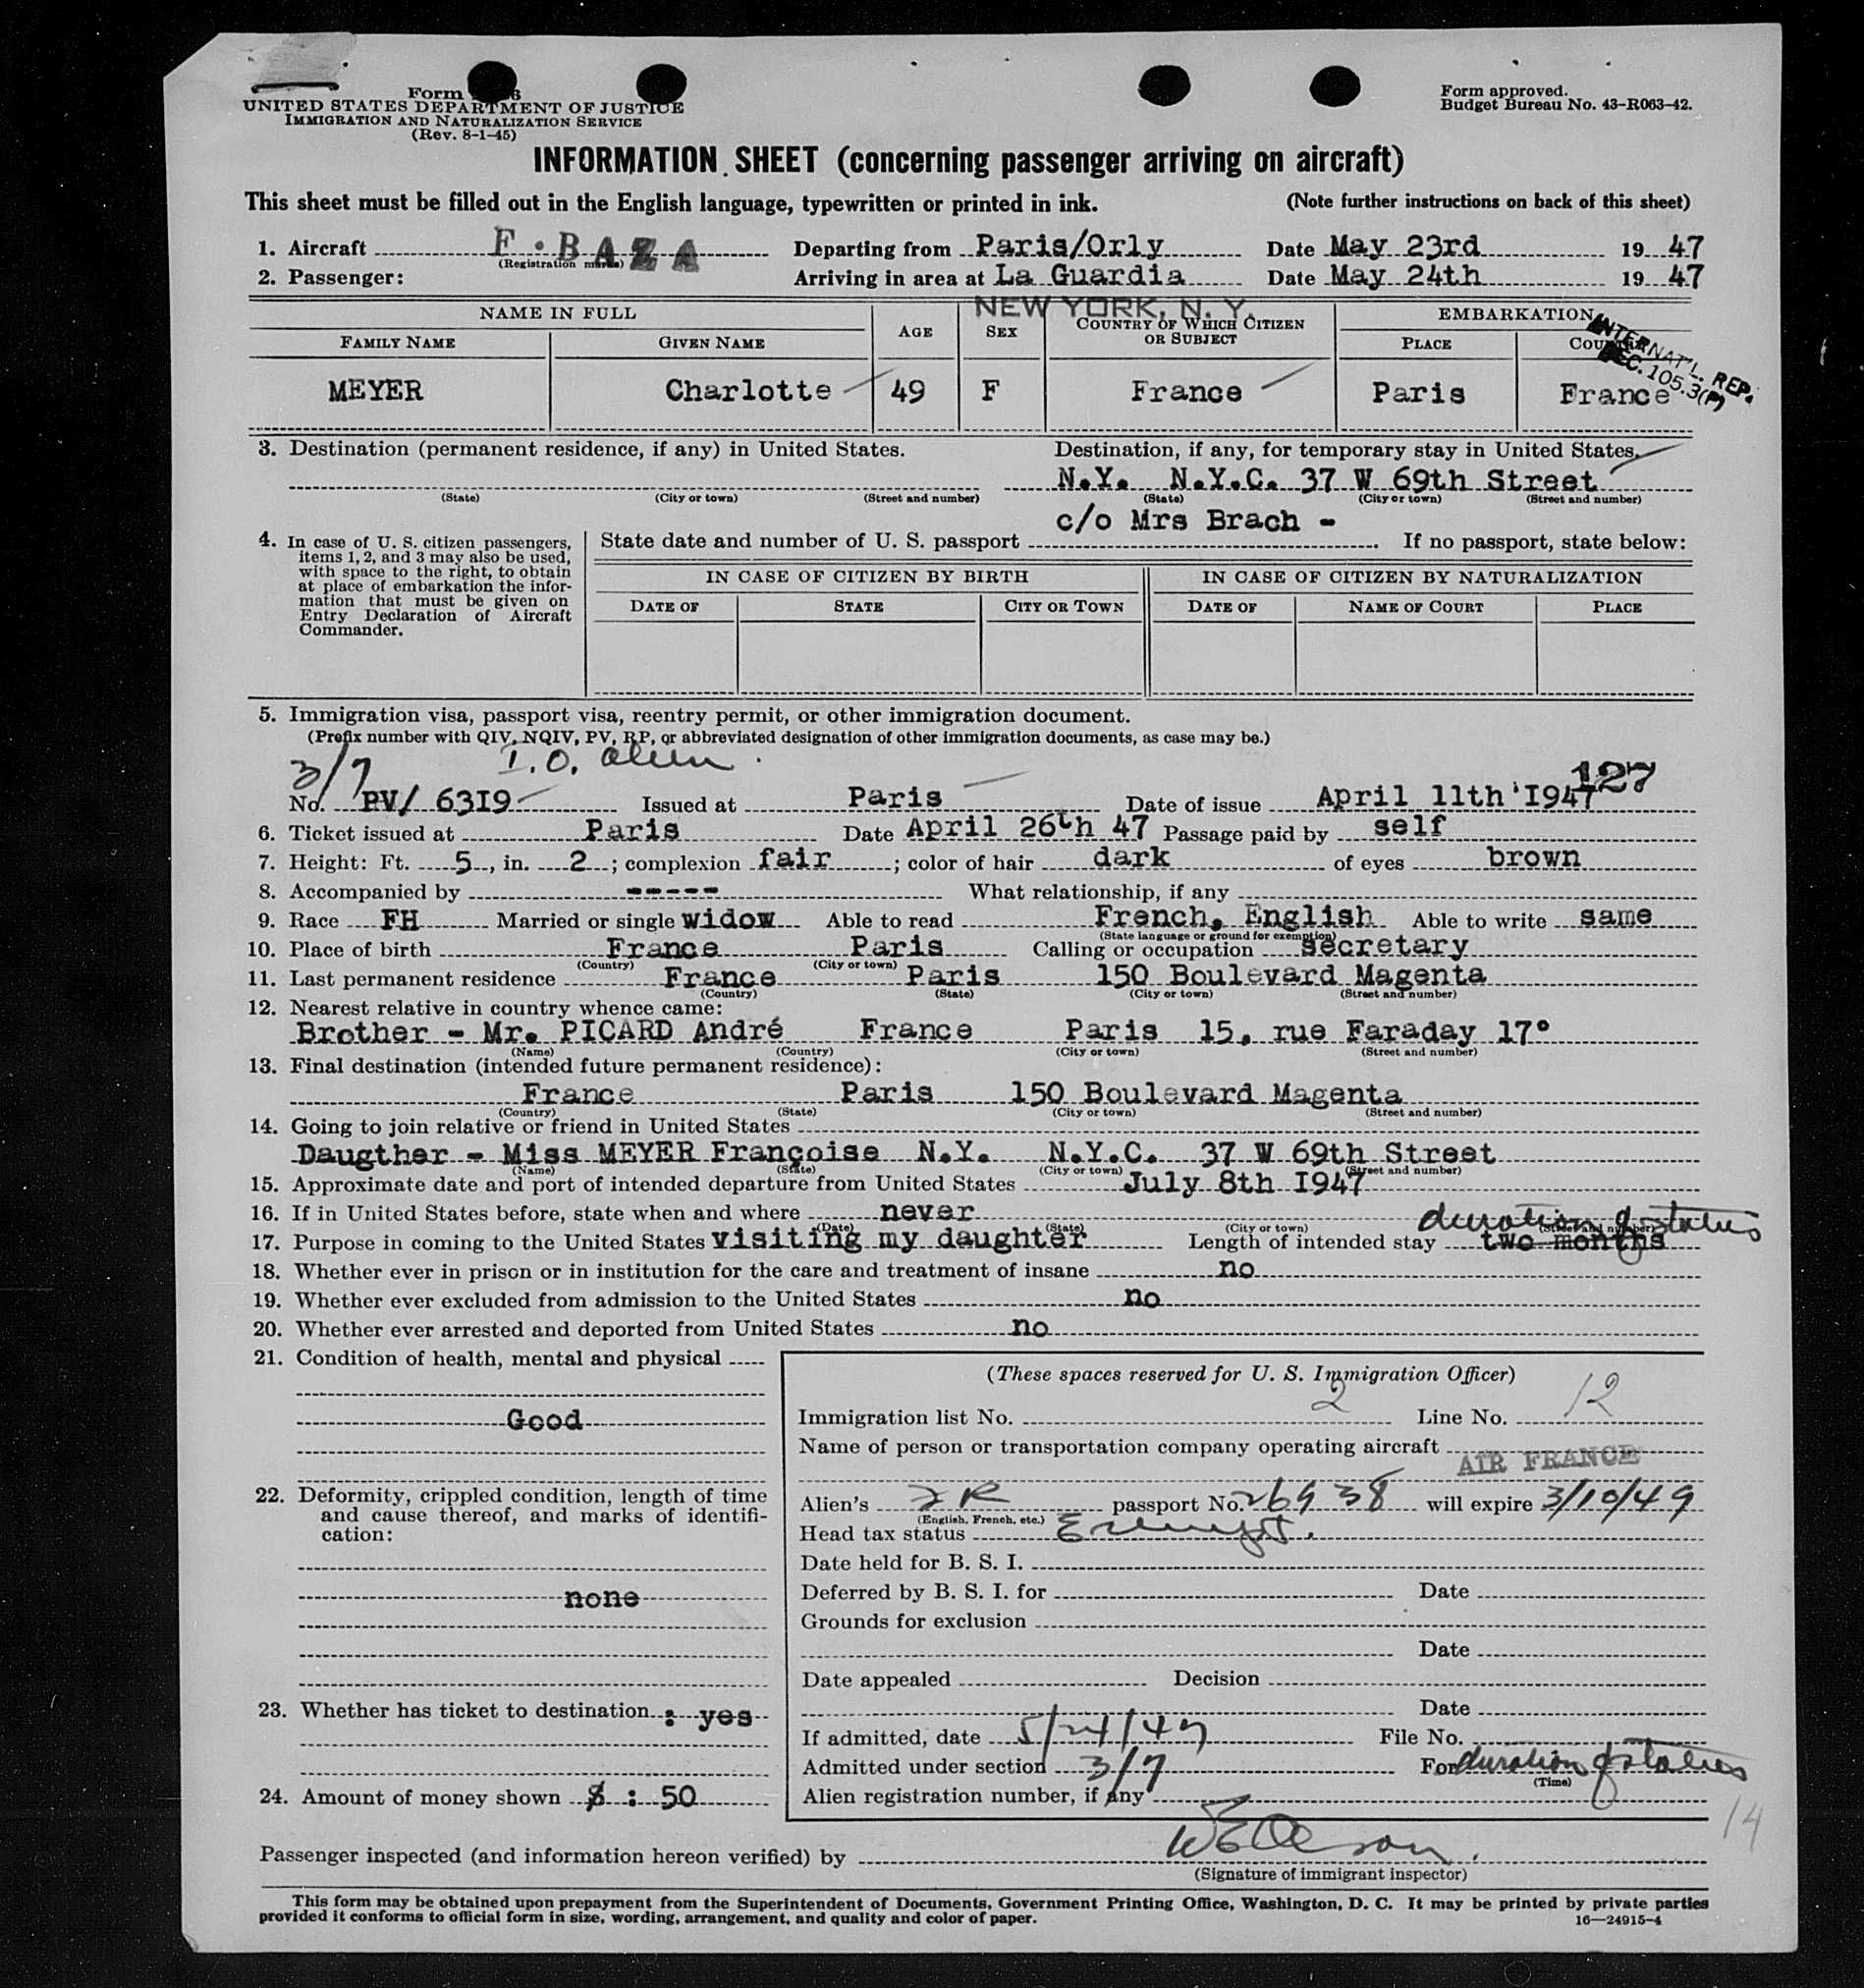 Form
UNITED STATES DEPARTMENT OF JUSTICE
IMMIGRATION AND NATURALIZATION SERVICE
(Rev. 8-1-45)
Form approved.
Budget Bureau No. 43-R063-42.
INFORMATION SHEET (concerning passenger arriving on aircraft)
This sheet must be filled out in the English language, typewritten or printed in ink. (Note further instructions on back of this sheet)
1. Aircraft F.BAZA Departing from Paris/Orly Date May 23rd 19 47
(Registration marks)
2. Passenger: Arriving in area at La Guardia Date May 24th 19 47
NEW YORK, N. Y.
NAME IN FULL AGE SEX COUNTRY OF WHICH CITIZEN OR SUBJECT EMBARKATION
FAMILY NAME GIVEN NAME PLACE COUNTRY
INTERNAT'L. REP.
SEC. 105.3(P)
MEYER Charlotte 49 F France Paris France
3. Destination (permanent residence, if any) in United States. Destination, if any, for temporary stay in United States.
N.Y. N.Y.C. 37 W 69th Street
(State) (City or town) (Street and number) (State) (City or town) (Street and number)
c/o Mrs Brach -
4. In case of U. S. citizen passengers, items 1, 2, and 3 may also be used, with space to the right, to obtain at place of embarkation the information that must be given on Entry Declaration of Aircraft Commander.
State date and number of U. S. passport If no passport, state below:
IN CASE OF CITIZEN BY BIRTH IN CASE OF CITIZEN BY NATURALIZATION
DATE OF STATE CITY OR TOWN DATE OF NAME OF COURT PLACE
5. Immigration visa, passport visa, reentry permit, or other immigration document.
(Prefix number with QIV, NQIV, PV, RP, or abbreviated designation of other immigration documents, as case may be.)
3/7 I.O. alien.
127
No. PV/ 63I9 Issued at Paris Date of issue April 11th I947
6. Ticket issued at Paris Date April 26th 47 Passage paid by self
7. Height: Ft. 5, in. 2; complexion fair; color of hair dark of eyes brown
8. Accompanied by ----- What relationship, if any
9. Race FH Married or single widow Able to read French, English Able to write same
(State language or ground for exemption)
10. Place of birth France Paris Calling or occupation secretary
(Country) (City or town)
11. Last permanent residence France Paris 150 Boulevard Magenta
(Country) (State) (City or town) (Street and number)
12. Nearest relative in country whence came:
Brother - Mr. PICARD André France Paris 15, rue Faraday 17°
(Name) (Country) (City or town) (Street and number)
13. Final destination (intended future permanent residence):
France Paris 150 Boulevard Magenta
(Country) (State) (City or town) (Street and number)
14. Going to join relative or friend in United States
Daugther - Miss MEYER Françoise N.Y. N.Y.C. 37 W 69th Street
(Name) (State) (City or town) (Street and number)
15. Approximate date and port of intended departure from United States July 8th I947
16. If in United States before, state when and where never
(Date) (State) (City or town) (Street and number)
duration of status
17. Purpose in coming to the United States visiting my daughter Length of intended stay two months
18. Whether ever in prison or in institution for the care and treatment of insane no
19. Whether ever excluded from admission to the United States no
20. Whether ever arrested and deported from United States no
21. Condition of health, mental and physical
Good
22. Deformity, crippled condition, length of time and cause thereof, and marks of identification:
none
23. Whether has ticket to destination : yes
24. Amount of money shown $ : 50
(These spaces reserved for U. S. Immigration Officer)
Immigration list No. 2 Line No. 12
Name of person or transportation company operating aircraft
AIR FRANCE
Alien's FR passport No. 26938 will expire 3/10/49
(English, French, etc.)
Head tax status Exempt.
Date held for B. S. I.
Deferred by B. S. I. for Date
Grounds for exclusion
Date
Date appealed Decision
Date
If admitted, date 5/24/47 File No.
Admitted under section 3/7 For duration of status
(Time)
Alien registration number, if any
14
Passenger inspected (and information hereon verified) by
(Signature of immigrant inspector)
This form may be obtained upon prepayment from the Superintendent of Documents, Government Printing Office, Washington, D. C. It may be printed by private parties
provided it conforms to official form in size, wording, arrangement, and quality and color of paper.
16—24915-4